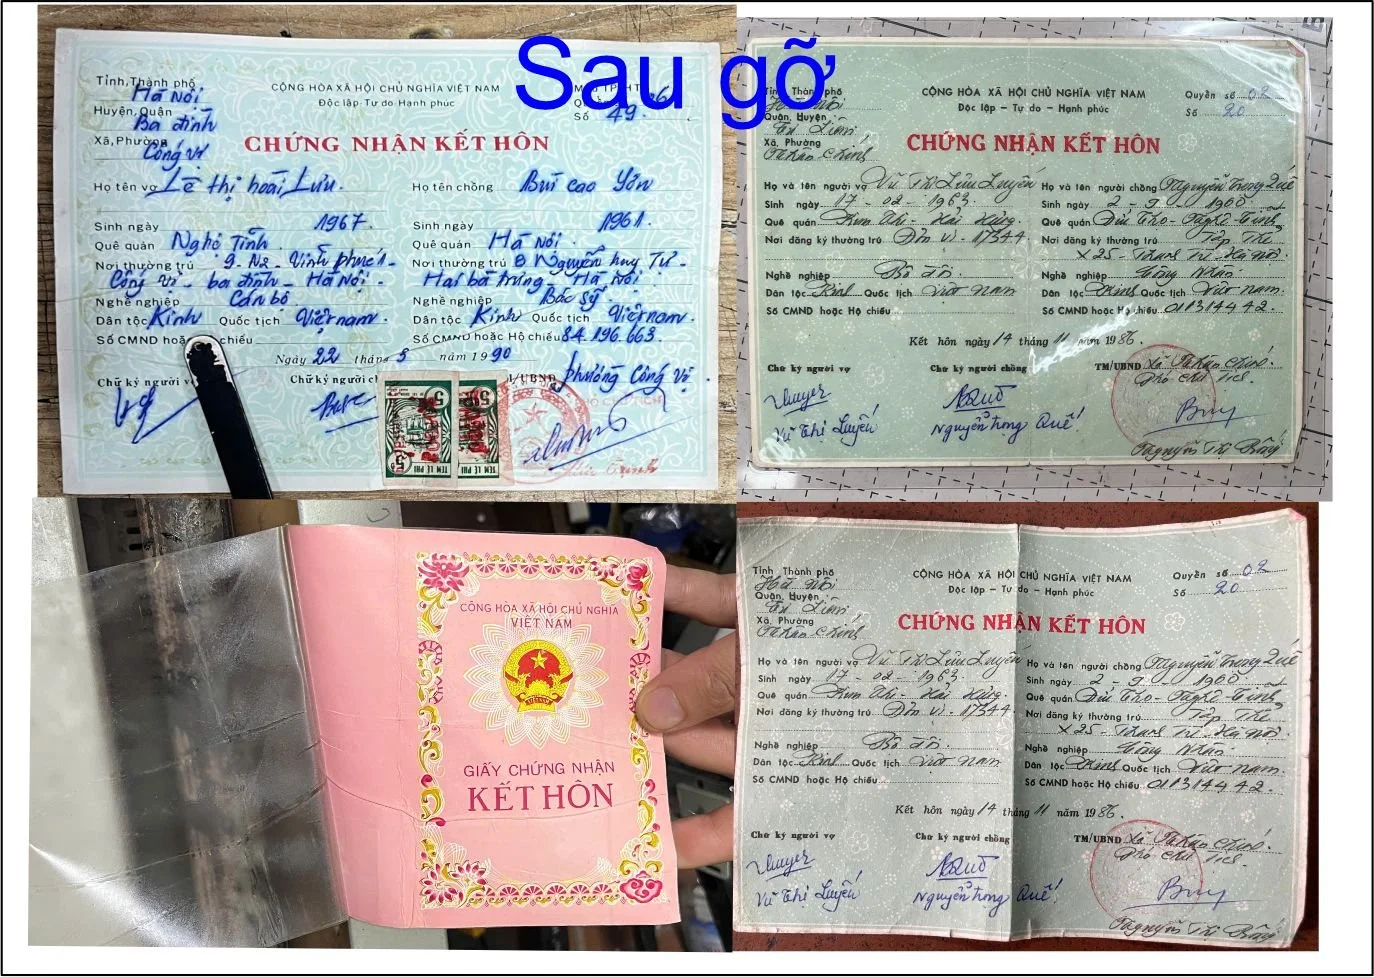 Sau gỡ
Tỉnh, Thành phố
Hà Nội
Huyện, Quận
Ba đình
Xã, Phường
Cống vị
CỘNG HÒA XÃ HỘI CHỦ NGHĨA VIỆT NAM
Độc lập - Tự do - Hạnh phúc
Số 49
CHỨNG NHẬN KẾT HÔN
Họ tên vợ Lê thị hoài Lưu.
Họ tên chồng Bùi cao Yên
Sinh ngày 1967.
Sinh ngày 1961.
Quê quán Nghệ Tĩnh
Quê quán Hà Nội.
Nơi thường trú
Nơi thường trú 8 Nguyễn huy Tự -
Cống vị - ba đình - Hà Nội -
Hai bà trưng - Hà Nội
Nghề nghiệp Cán bộ
Nghề nghiệp Bác sỹ
Dân tộc Kinh Quốc tịch Việt nam.
Dân tộc Kinh Quốc tịch Việt nam.
Số CMND hoặc chiếu
Số CMND hoặc Hộ chiếu 84.196.663.
Ngày 22 tháng 5 năm 1990
Chữ ký người vợ
Chữ ký người
/UBND phường Cống Vị
TEM LỆ PHÍ
TEM LỆ PHÍ
Tỉnh, Thành phố
Hà Nội
Quận, Huyện
Từ Liêm
Xã, Phường
CỘNG HÒA XÃ HỘI CHỦ NGHĨA VIỆT NAM
Độc lập - Tự do - Hạnh phúc
Quyển số 02
Số 20
CHỨNG NHẬN KẾT HÔN
Họ và tên người vợ Vũ Thị Lưu Luyến
Họ và tên người chồng Nguyễn Trọng Quế
Sinh ngày 17 - 02 - 1963.
Sinh ngày 2 - 9 - 1960
Quê quán Kim Thi - Hải Hưng.
Quê quán - Nghệ Tĩnh
Nơi đăng ký thường trú Đơn vị - 17344
Nơi đăng ký thường trú Tập Thể
X25 - - Hà Nội
Nghề nghiệp Bộ đội
Nghề nghiệp Công Nhân
Dân tộc Kinh Quốc tịch Việt nam
Dân tộc Kinh Quốc tịch Việt nam.
Số CMND hoặc Hộ chiếu
Số CMND hoặc Hộ chiếu 011314442.
Kết hôn ngày 14 tháng 11 năm 1986.
Chữ ký người vợ
Chữ ký người chồng
TM/UBND Xã
Phó chủ tịch
Vũ Thị Luyến
Nguyễn Trọng Quế
Nguyễn Thị
CỘNG HÒA XÃ HỘI CHỦ NGHĨA
VIỆT NAM
GIẤY CHỨNG NHẬN
KẾT HÔN
Tỉnh Thành phố
Hà Nội
Quận, Huyện
Từ Liêm
Xã, Phường
CỘNG HÒA XÃ HỘI CHỦ NGHĨA VIỆT NAM
Độc lập - Tự do - Hạnh phúc
Quyển số 02
Số 20
CHỨNG NHẬN KẾT HÔN
Họ và tên người vợ Vũ Thị Lưu Luyến
Họ và tên người chồng Nguyễn Trọng Quế
Sinh ngày 17 - 02 - 1963.
Sinh ngày 2 - 9 - 1960
Quê quán Kim Thi - Hải Hưng.
Quê quán - Nghệ Tĩnh
Nơi đăng ký thường trú Đơn vị - 17344
Nơi đăng ký thường trú Tập Thể
X25 - - Hà Nội
Nghề nghiệp Bộ đội
Nghề nghiệp Công Nhân
Dân tộc Kinh Quốc tịch Việt nam
Dân tộc Kinh Quốc tịch Việt nam.
Số CMND hoặc Hộ chiếu
Số CMND hoặc Hộ chiếu 011314442.
Kết hôn ngày 14 tháng 11 năm 1986.
Chữ ký người vợ
Chữ ký người chồng
TM/UBND Xã
Phó chủ tịch
Vũ Thị Luyến
Nguyễn Trọng Quế
Nguyễn Thị